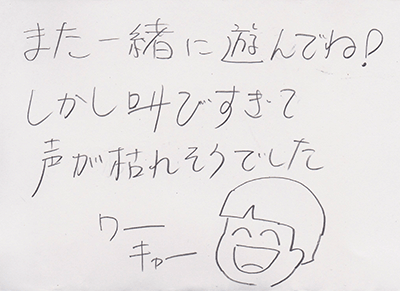 また一緒に遊んでね!
しかし叫びすぎて
声が枯れそうでした
ワー
キャー